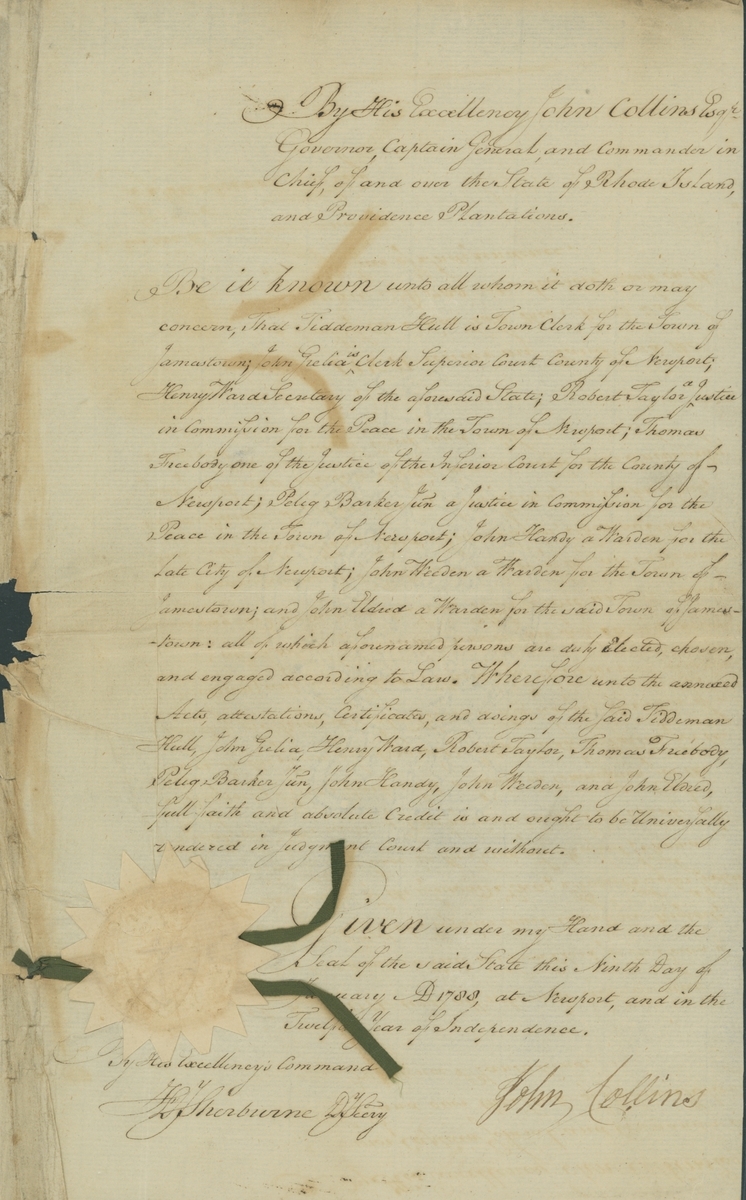 By His Excellency John Collins Esqr.
Governor, Captain General, and Commander in
Chief, of and over the State of Rhode Island,
and Providence Plantations.
Be it known unto all whom it doth or may
concern, That Tiddeman Hull is Town Clerk for the Town of
Jamestown; John Grelia is Clerk Superior Court County of Newport;
Henry Ward Secretary of the aforesaid State; Robert Taylor a Justice
in Commission for the Peace in the Town of Newport; Thomas
Freebody one of the Justice of the Inferior Court for the County of
Newport; Peleg Barker Jun a Justice in Commission for the
Peace in the Town of Newport; John Handy a Warden for the
Late City of Newport; John Weeden a Warden for the Town of
Jamestown; and John Eldred a Warden for the said Town of James-
-town: all of which aforenamed persons are duly Elected, chosen,
and engaged according to Law. Wherefore unto the annexed
Acts, attestations, Certificates, and doings of the said Tiddeman
Hull, John Grelia, Henry Ward, Robert Taylor, Thomas Freebody,
Peleg Barker Jun, John Handy, John Weeden, and John Eldred,
full faith and absolute Credit is and ought to be Universally
rendered in Judgment Court and without.
Given under my Hand and the
Seal of the said State this Ninth Day of
January AD 1788, at Newport, and in the
Twelfth Year of Independence.
By His Excellency's Command
Hy Sherburne D Secry
John Collins